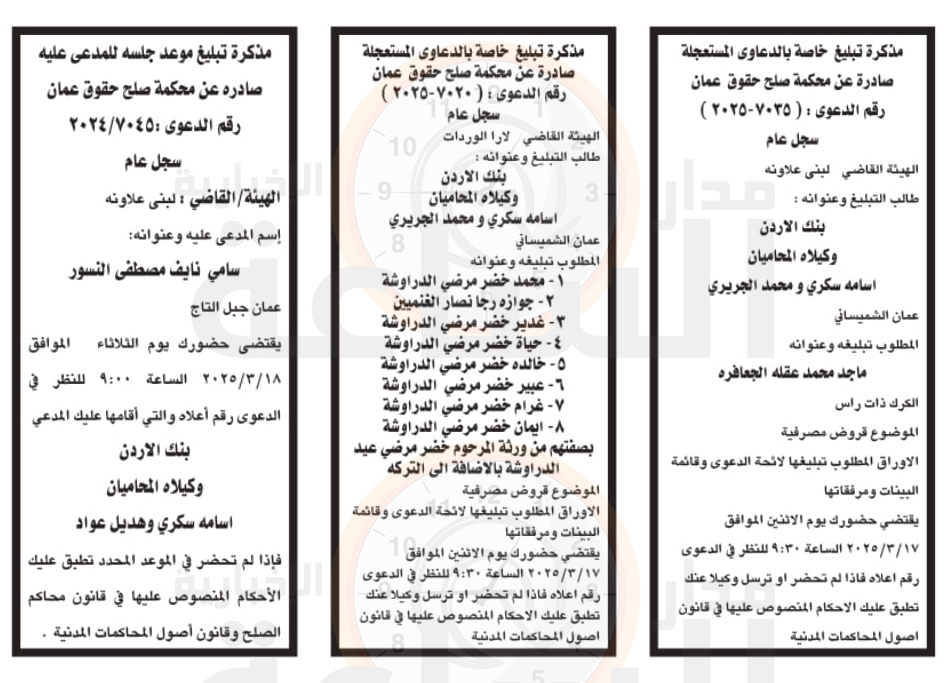 مذكرة تبليغ خاصة بالدعاوى المستعجلة
صادرة عن محكمة صلح حقوق عمان
رقم الدعوى : ( ٧٠٣٥-٢٠٢٥ )
سجل عام
الهيئة القاضي لبنى علاونه
طالب التبليغ وعنوانه :
بنك الاردن
وكيلاه المحاميان
اسامه سكري و محمد الجريري
عمان الشميساني
المطلوب تبليغه وعنوانه
ماجد محمد عقله الجعافره
الكرك ذات راس
الموضوع قروض مصرفية
الاوراق المطلوب تبليغها لائحة الدعوى وقائمة
البينات ومرفقاتها
يقتضي حضورك يوم الاثنين الموافق
٢٠٢٥/٣/١٧ الساعة ٩:٣٠ للنظر في الدعوى
رقم اعلاه فاذا لم تحضر او ترسل وكيلا عنك
تطبق عليك الاحكام المنصوص عليها في قانون
اصول المحاكمات المدنية
مذكرة تبليغ خاصة بالدعاوى المستعجلة
صادرة عن محكمة صلح حقوق عمان
رقم الدعوى : ( ٧٠٢٠-٢٠٢٥ )
سجل عام
الهيئة القاضي لارا الوردات
طالب التبليغ وعنوانه :
بنك الاردن
وكيلاه المحاميان
اسامه سكري و محمد الجريري
عمان الشميساني
المطلوب تبليغه وعنوانه
١- محمد خضر مرضي الدراوشة
٢- جوازه رجا نصار الغنميين
٣- غدير خضر مرضي الدراوشة
٤- حياة خضر مرضي الدراوشة
٥- خالده خضر مرضي الدراوشة
٦- عبير خضر مرضي الدراوشة
٧- غرام خضر مرضي الدراوشة
٨- ايمان خضر مرضي الدراوشة
بصفتهم من ورثة المرحوم خضر مرضي عيد
الدراوشة بالاضافة الى التركه
الموضوع قروض مصرفية
الاوراق المطلوب تبليغها لائحة الدعوى وقائمة
البينات ومرفقاتها
يقتضي حضورك يوم الاثنين الموافق
٢٠٢٥/٣/١٧ الساعة ٩:٣٠ للنظر في الدعوى
رقم اعلاه فاذا لم تحضر او ترسل وكيلا عنك
تطبق عليك الاحكام المنصوص عليها في قانون
اصول المحاكمات المدنية
مذكرة تبليغ موعد جلسه للمدعى عليه
صادره عن محكمة صلح حقوق عمان
رقم الدعوى :٢٠٢٤/٧٠٤٥
سجل عام
الهيئة/القاضي : لبنى علاونه
إسم المدعى عليه وعنوانه:
سامي نايف مصطفى النسور
عمان جبل التاج
يقتضى حضورك يوم الثلاثاء الموافق
٢٠٢٥/٣/١٨ الساعة ٩:٠٠ للنظر في
الدعوى رقم أعلاه والتي أقامها عليك المدعي
بنك الاردن
وكيلاه المحاميان
اسامه سكري وهديل عواد
فإذا لم تحضر في الموعد المحدد تطبق عليك
الأحكام المنصوص عليها في قانون محاكم
الصلح وقانون أصول المحاكمات المدنية .
مدار
الساعة
الإخبارية